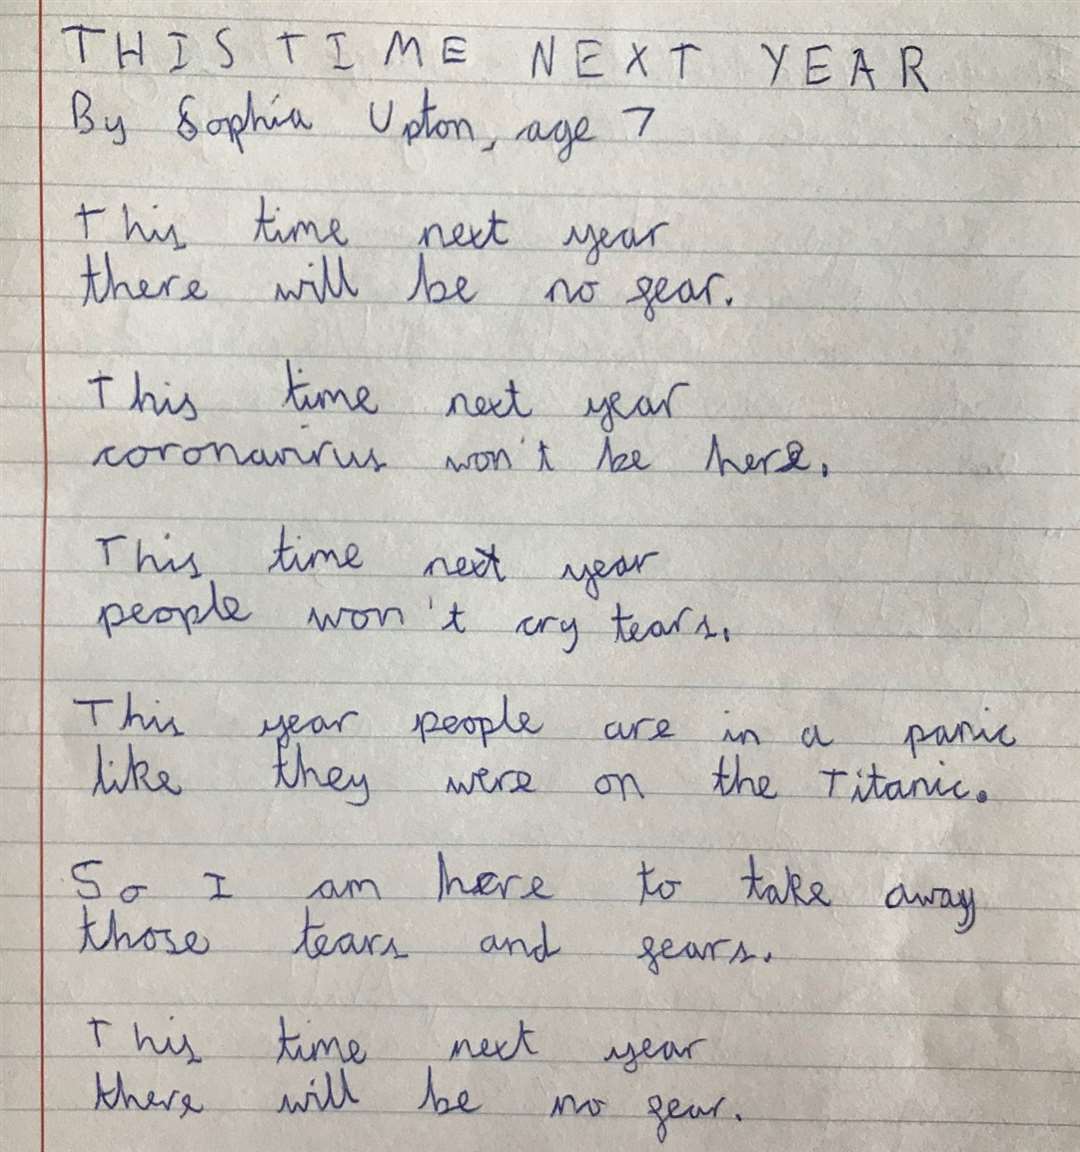 THIS TIME NEXT YEAR
By Sophia Upton, age 7
This time next year
there will be no fear.
This time next year
coronavirus won't be here.
This time next year
people won't cry tears.
This year people are in a panic
like they were on the Titanic.
So I am here to take away
those tears and fears.
This time next year
there will be no fear.